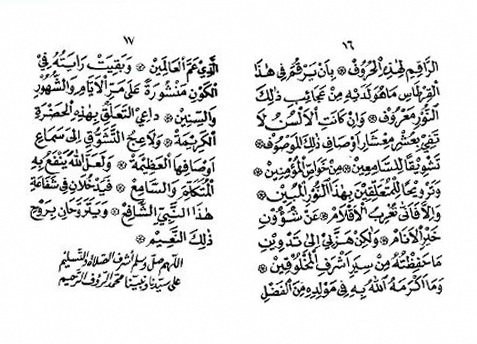 ١٦
الرَّاقِمِ لِهٰذِهِ الْحُرُوفْ ۞ بِأَنْ يَرْقُمَ فِي هٰذَا
الْقِرْطَاسِ مَا هُوَ لَدَيْهِ مِنْ عَجَائِبِ ذٰلِكَ
النُّورِ مَعْرُوفْ ۞ وَإِنْ كَانَتِ الْأَلْسُنُ لَا
تَفِي بِعُشْرِ مِعْشَارِ أَوْصَافِ ذٰلِكَ الْمَوْصُوفْ ۞
تَشْوِيقًا لِلسَّامِعِينْ ۞ مِنْ خَوَاصِّ الْمُؤْمِنِينْ ۞
وَتَرْوِيحًا لِلْمُتَعَلِّقِينَ بِهٰذَا النُّورِ الْمُبِينْ ۞
وَإِلَّا فَأَنَّى تُعْرِبُ الْأَقْلَامْ ۞ عَنْ شُؤُونِ
خَيْرِ الْأَنَامْ ۞ وَلٰكِنْ هَزَّنِي إِلَى تَدْوِينِ
مَا حَفِظْتُهُ مِنْ سِيَرِ أَشْرَفِ الْمَخْلُوقِينْ ۞
وَمَا أَكْرَمَهُ اللهُ بِهِ فِي مَوْلِدِهِ مِنَ الْفَضْلِ
١٧
الَّذِي عَمَّ الْعَالَمِينْ ۞ وَبَقِيَتْ رَايَتُهُ فِي
الْكَوْنِ مَنْشُورَةً عَلَى مَرِّ الْأَيَّامِ وَالشُّهُورِ
وَالسِّنِينْ ۞ دَاعِي التَّعَلُّقِ بِهٰذِهِ الْحَضْرَةِ
الْكَرِيمَةْ ۞ وَلَاعِجُ التَّشَوُّقِ إِلَى سَمَاعِ
أَوْصَافِهَا الْعَظِيمَةْ ۞ وَلَعَلَّ اللهَ يَنْفَعُ بِهِ
الْمُتَكَلِّمَ وَالسَّامِعْ ۞ فَيَدْخُلَانِ فِي شَفَاعَةِ
هٰذَا النَّبِيِّ الشَّافِعْ ۞ وَيَتَرَوَّحَانِ بِرَوْحِ
ذٰلِكَ النَّعِيمْ ۞
اللهم صل وسلم أشرف الصلاة والتسليم
على سيدنا ونبينا محمد الرؤوف الرحيم